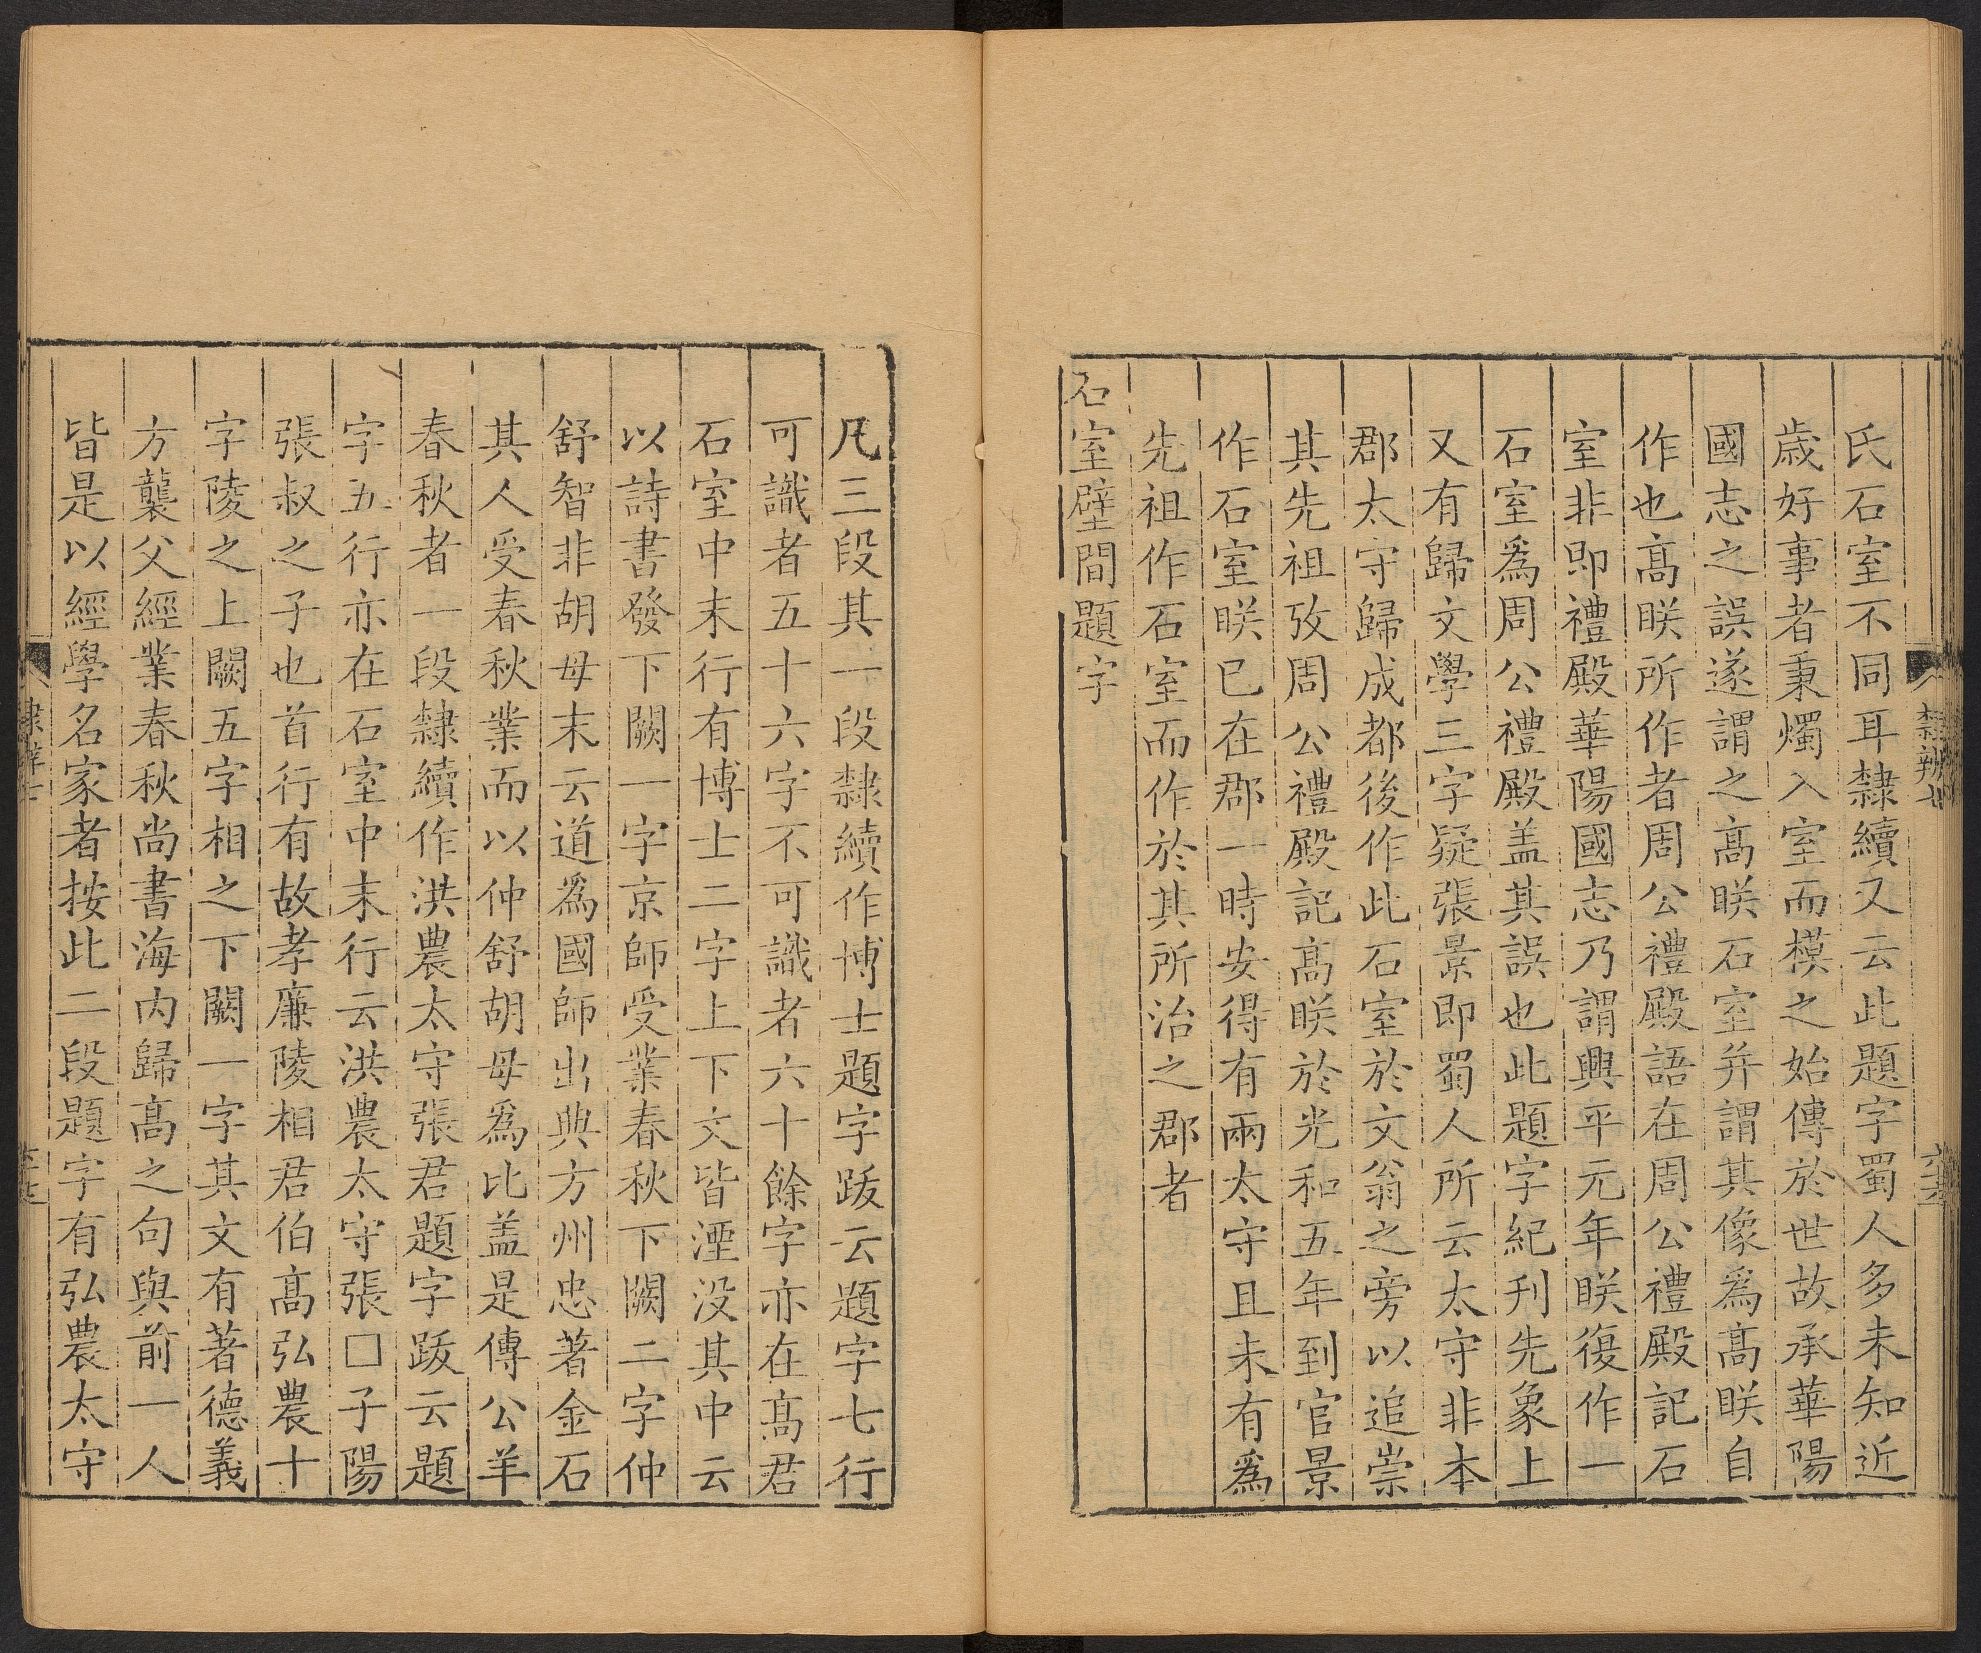 氏石室不同耳隸續又云此題字蜀人多未知近
歲好事者秉燭入室而模之始傳於世故承華陽
國志之誤遂謂之高眹石室并謂其像爲高眹自
作也高眹所作者周公禮殿語在周公禮殿記石
室非即禮殿華陽國志乃謂興平元年眹復作一
石室爲周公禮殿盖其誤也此題字紀刊先象上
又有歸文學三字疑張景即蜀人所云太守非本
郡太守歸成都後作此石室於文翁之旁以追崇
其先祖攷周公禮殿記高眹於光和五年到官景
作石室眹已在郡一時安得有兩太守且未有爲
先祖作石室而作於其所治之郡者
石室壁間題字
凡三段其一段隸續作博士題字䟦云題字七行
可識者五十六字不可識者六十餘字亦在高君
石室中末行有博士二字上下文皆湮没其中云
以詩書發下闕一字京師受業春秋下闕二字仲
舒智非胡母末云道爲國師出典方州忠著金石
其人受春秋業而以仲舒胡母爲比盖是傳公羊
春秋者一段隸續作洪農太守張君題字䟦云題
字五行亦在石室中末行云洪農太守張□子陽
張叔之子也首行有故孝廉陵相君伯高弘農十
字陵之上闕五字相之下闕一字其文有著德義
方襲父經業春秋尚書海内歸高之句與前一人
皆是以經學名家者按此二段題字有弘農太守